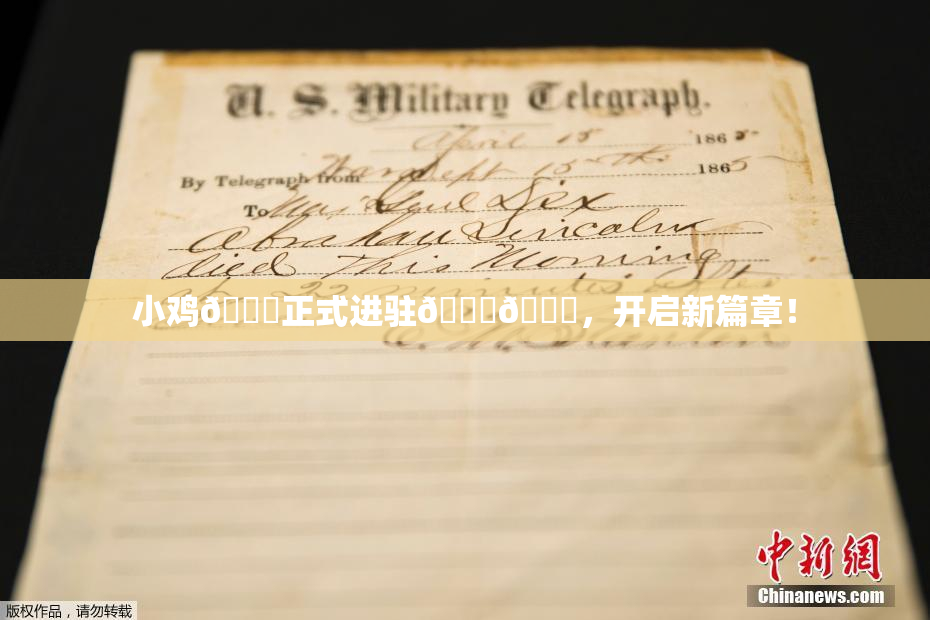 U. S. Military Telegraph.
April 15 1865
By Telegraph from War Dept 15th 1865
To Maj Genl Dix
Abraham Lincoln
died This Morning
at 22 minutes after
小鸡ð正式进驻ðð，开启新篇章！
E. M. Stanton
中新网
Chinanews.com
版权作品，请勿转载